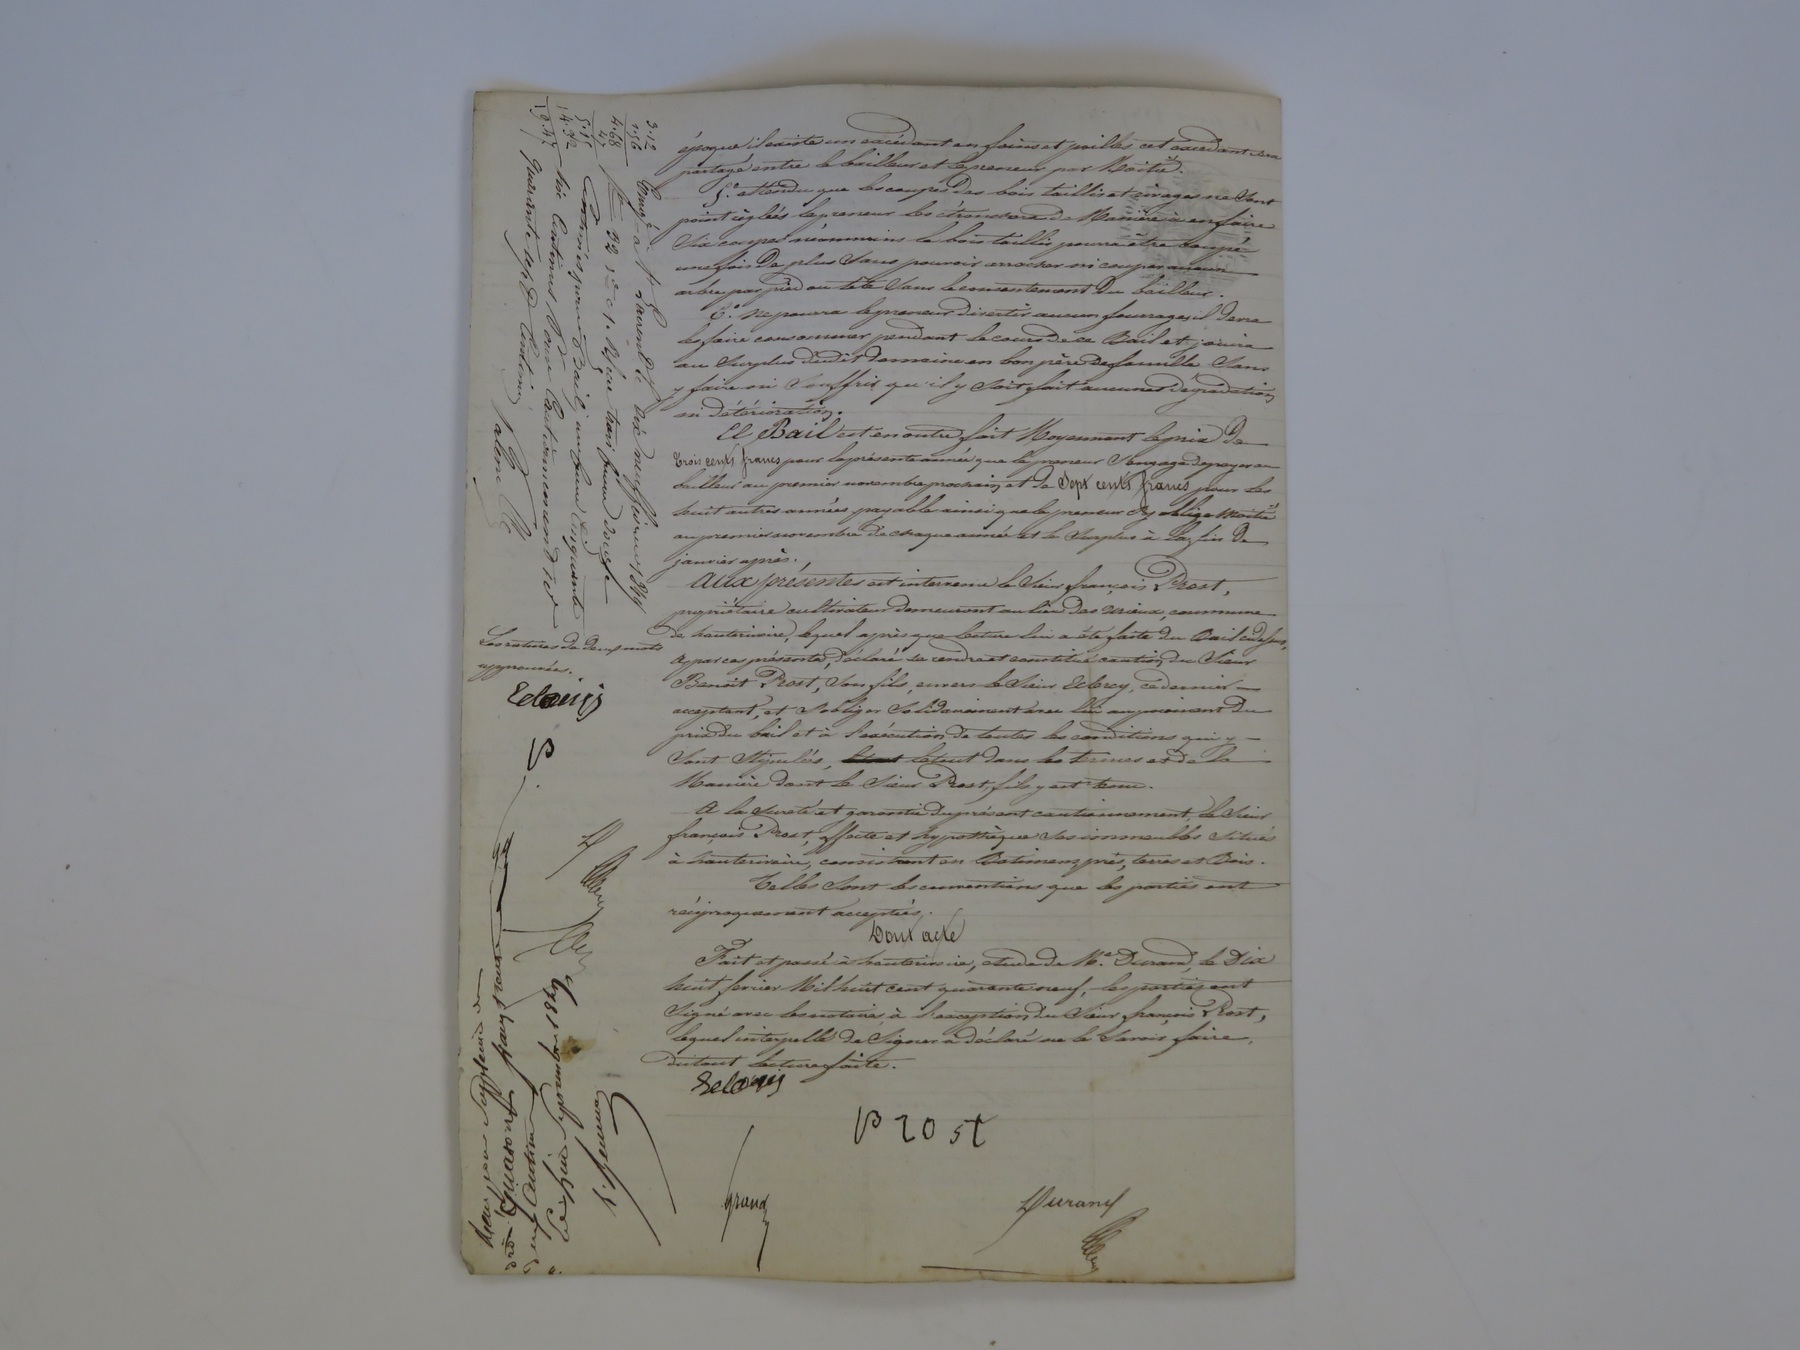 époque il existe un excédant en foins et pailles cet excédant sera
partagé entre le bailleur et le preneur par Moitié.
5.° attendu que les coupes des bois taillis et èvages ne sont
point réglées le preneur les de Manière à en faire
Six coupes néanmoins le bois taillis pourra être coupé
une fois de plus sans pouvoir arracher ni couper aucun
arbre par pied ou tête sans le consentement du bailleur.
6.° ne pourra le preneur divertir aucun fourrage il devra
les faire consommer pendant le cours de ce Bail et jouira
au surplus dudit domaine en bon père de famille sans
y faire ni souffrir qu'il y soit fait aucunes dégradation
ni détérioration.
Ce Bail est en outre fait Moyennant le prix de
trois cents francs pour la présente année que le preneur s'engage de payer au
bailleur au premier novembre prochain et de Sept cents francs pour les
huit autres années payable ainsi que le preneur s'y oblige Moitié
au premier novembre de chaque année et le surplus à la fin de
janvier après.
Aux présentes est intervenu le Sieur françois Prost,
propriétaire cultivateur demeurant au lieu des commune
de hauterivoire, lequel après que lecture lui a été faite du Bail ci dessus,
a par ces présentes, déclaré se rendre et constitué caution du Sieur
Benoit Prost, son fils, envers le Sieur ce dernier
acceptant, et s'obliger solidairement avec lui au paiement du
prix du bail et à l'exécution de toutes les conditions qui y
sont stipulées, le tout dans les termes et de la
Manière dont le Sieur Prost fils y est tenu.
A la sureté et garantie du présent cautionnement, le Sieur
françois Prost, affecte et hypothèque ses immeubles situés
à hauterivoire, consistant en Batimens, prés, terres et Bois.
Telles sont les conventions que les parties ont
réciproquement acceptées.
Dont acte
Fait et passé à hauterivoire, étude de M.e Durand, le Dix
huit février Mil huit cent quarante neuf, les parties ont
signé avec les notaires à l'exception du Sieur françois Prost,
lequel interpellé de Signer a déclaré ne le savoir faire,
du tout lecture faite.
Prost
Durand
3.12
1.56
4.68
47
5.15
14.32
19.47
Enreg.é à St Laurent le dix neuf février 1849
f° 32 Reçu trois francs douze
Centimes pour Bail, un franc cinquante
six Centimes pour Cautionnement et
quarante sept Centimes
Les ratures de deux mots
approuvées.
P.
Reçu pour supplément de
quatorze francs trente deux
Centimes